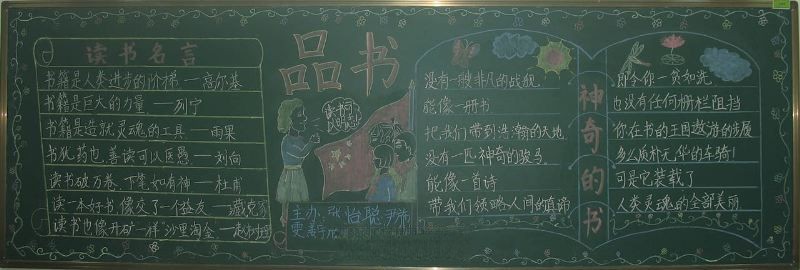 读书名言
书籍是人类进步的阶梯——高尔基
书籍是巨大的力量——列宁
书籍是造就灵魂的工具——雨果
书犹药也,善读可以医愚——刘向
读书破万卷,下笔如有神——杜甫
读一本好书像交了一个益友——臧克家
读书也像开矿一样“沙里淘金”——赵树理
品书
主办:
怡聪
没有一艘非凡的战舰
能像一册书
把我们带到浩瀚的天地
没有一匹神奇的骏马
能像一首诗
带我们领略人间的真谛
神奇的书
即令你一贫如洗
也没有任何栅栏阻挡
你在书的王国遨游的步履
多么质朴无华的车骑!
可是它装载了
人类灵魂的全部美丽